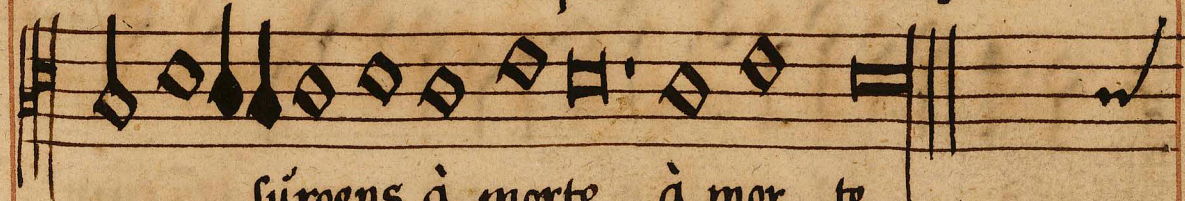 surgens à morte à mor te